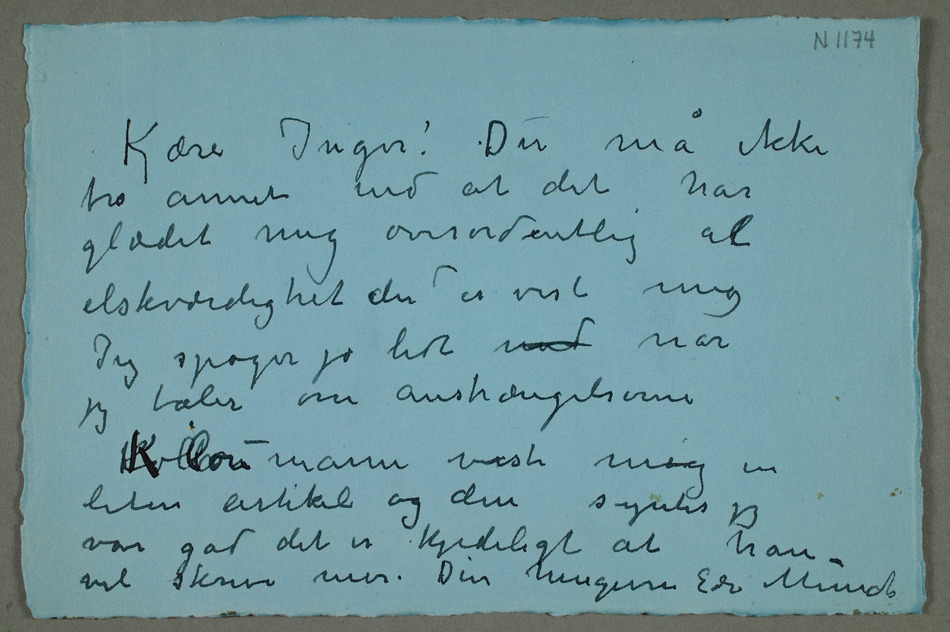 N 1174
Kjære Inger! Du må ikke
tro annet end at det har
glædet mig overordentlig al
elskværdighet der er vist mig
Jeg spøger jo lidt med når
jeg taler om anstrængelserne
mann viste mig en
liten artikel og den syntes jeg
var god det er kjedeligt at han
vil skrive mer. Din hengivne Edv Munch